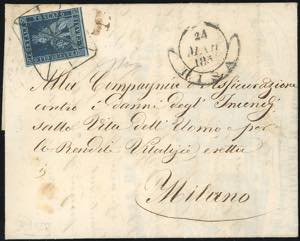 24
PISA
Alla Compagnia di Assicurazione
contro i danni degl' Incendj
sulla Vita dell' Uomo e per
le Rendite Vitalizie eretta
Milano